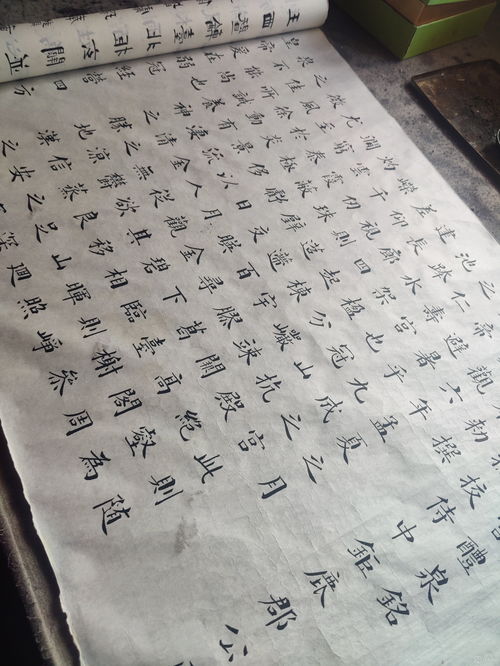 醴泉銘
校侍中鉅鹿郡公
勅撰
觀六年孟夏之月
帝避暑乎九成之宮此則随
之仁壽宮也冠山抗殿絶壑為
池跨水架楹分巖竦闕高閣周
建長廊四起棟宇膠葛臺榭參
差仰視則迢遰百尋下臨則崢
嶸千仞珠璧交映金碧相暉照
灼雲霞蔽虧日月觀其移山廻
澗窮泰極侈以人從欲良足
尤至於炎景流金無鬱蒸之
微風徐動有凄清之涼信安
之佳所誠養神之勝地漢之
泉不能尚也
皇帝爰在弱冠經營四方